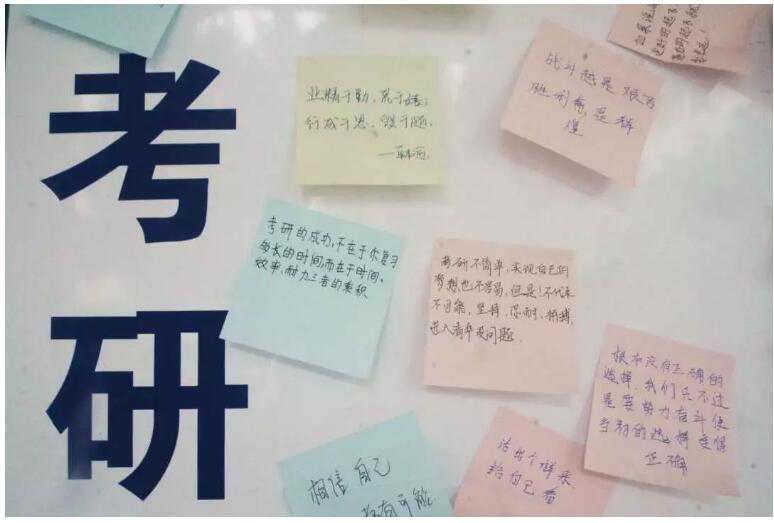 考
研
业精于勤，荒于嬉；
行成于思，毁于随。
战斗越是艰苦
胜利愈是辉
煌
考研的成功，不在于你复习
多长的时间，而在于时间、
效率、耐力三者的乘积
考研不简单，实现自己的
梦想也不容易，但是！不代表
不可能，坚持，忍耐，拼搏，
进入清华没问题
根本没有正确的
选择，我们只不过
是要努力奋斗使
当初的选择变得
正确
相信自己
没有可能
活出个样来
给自己看